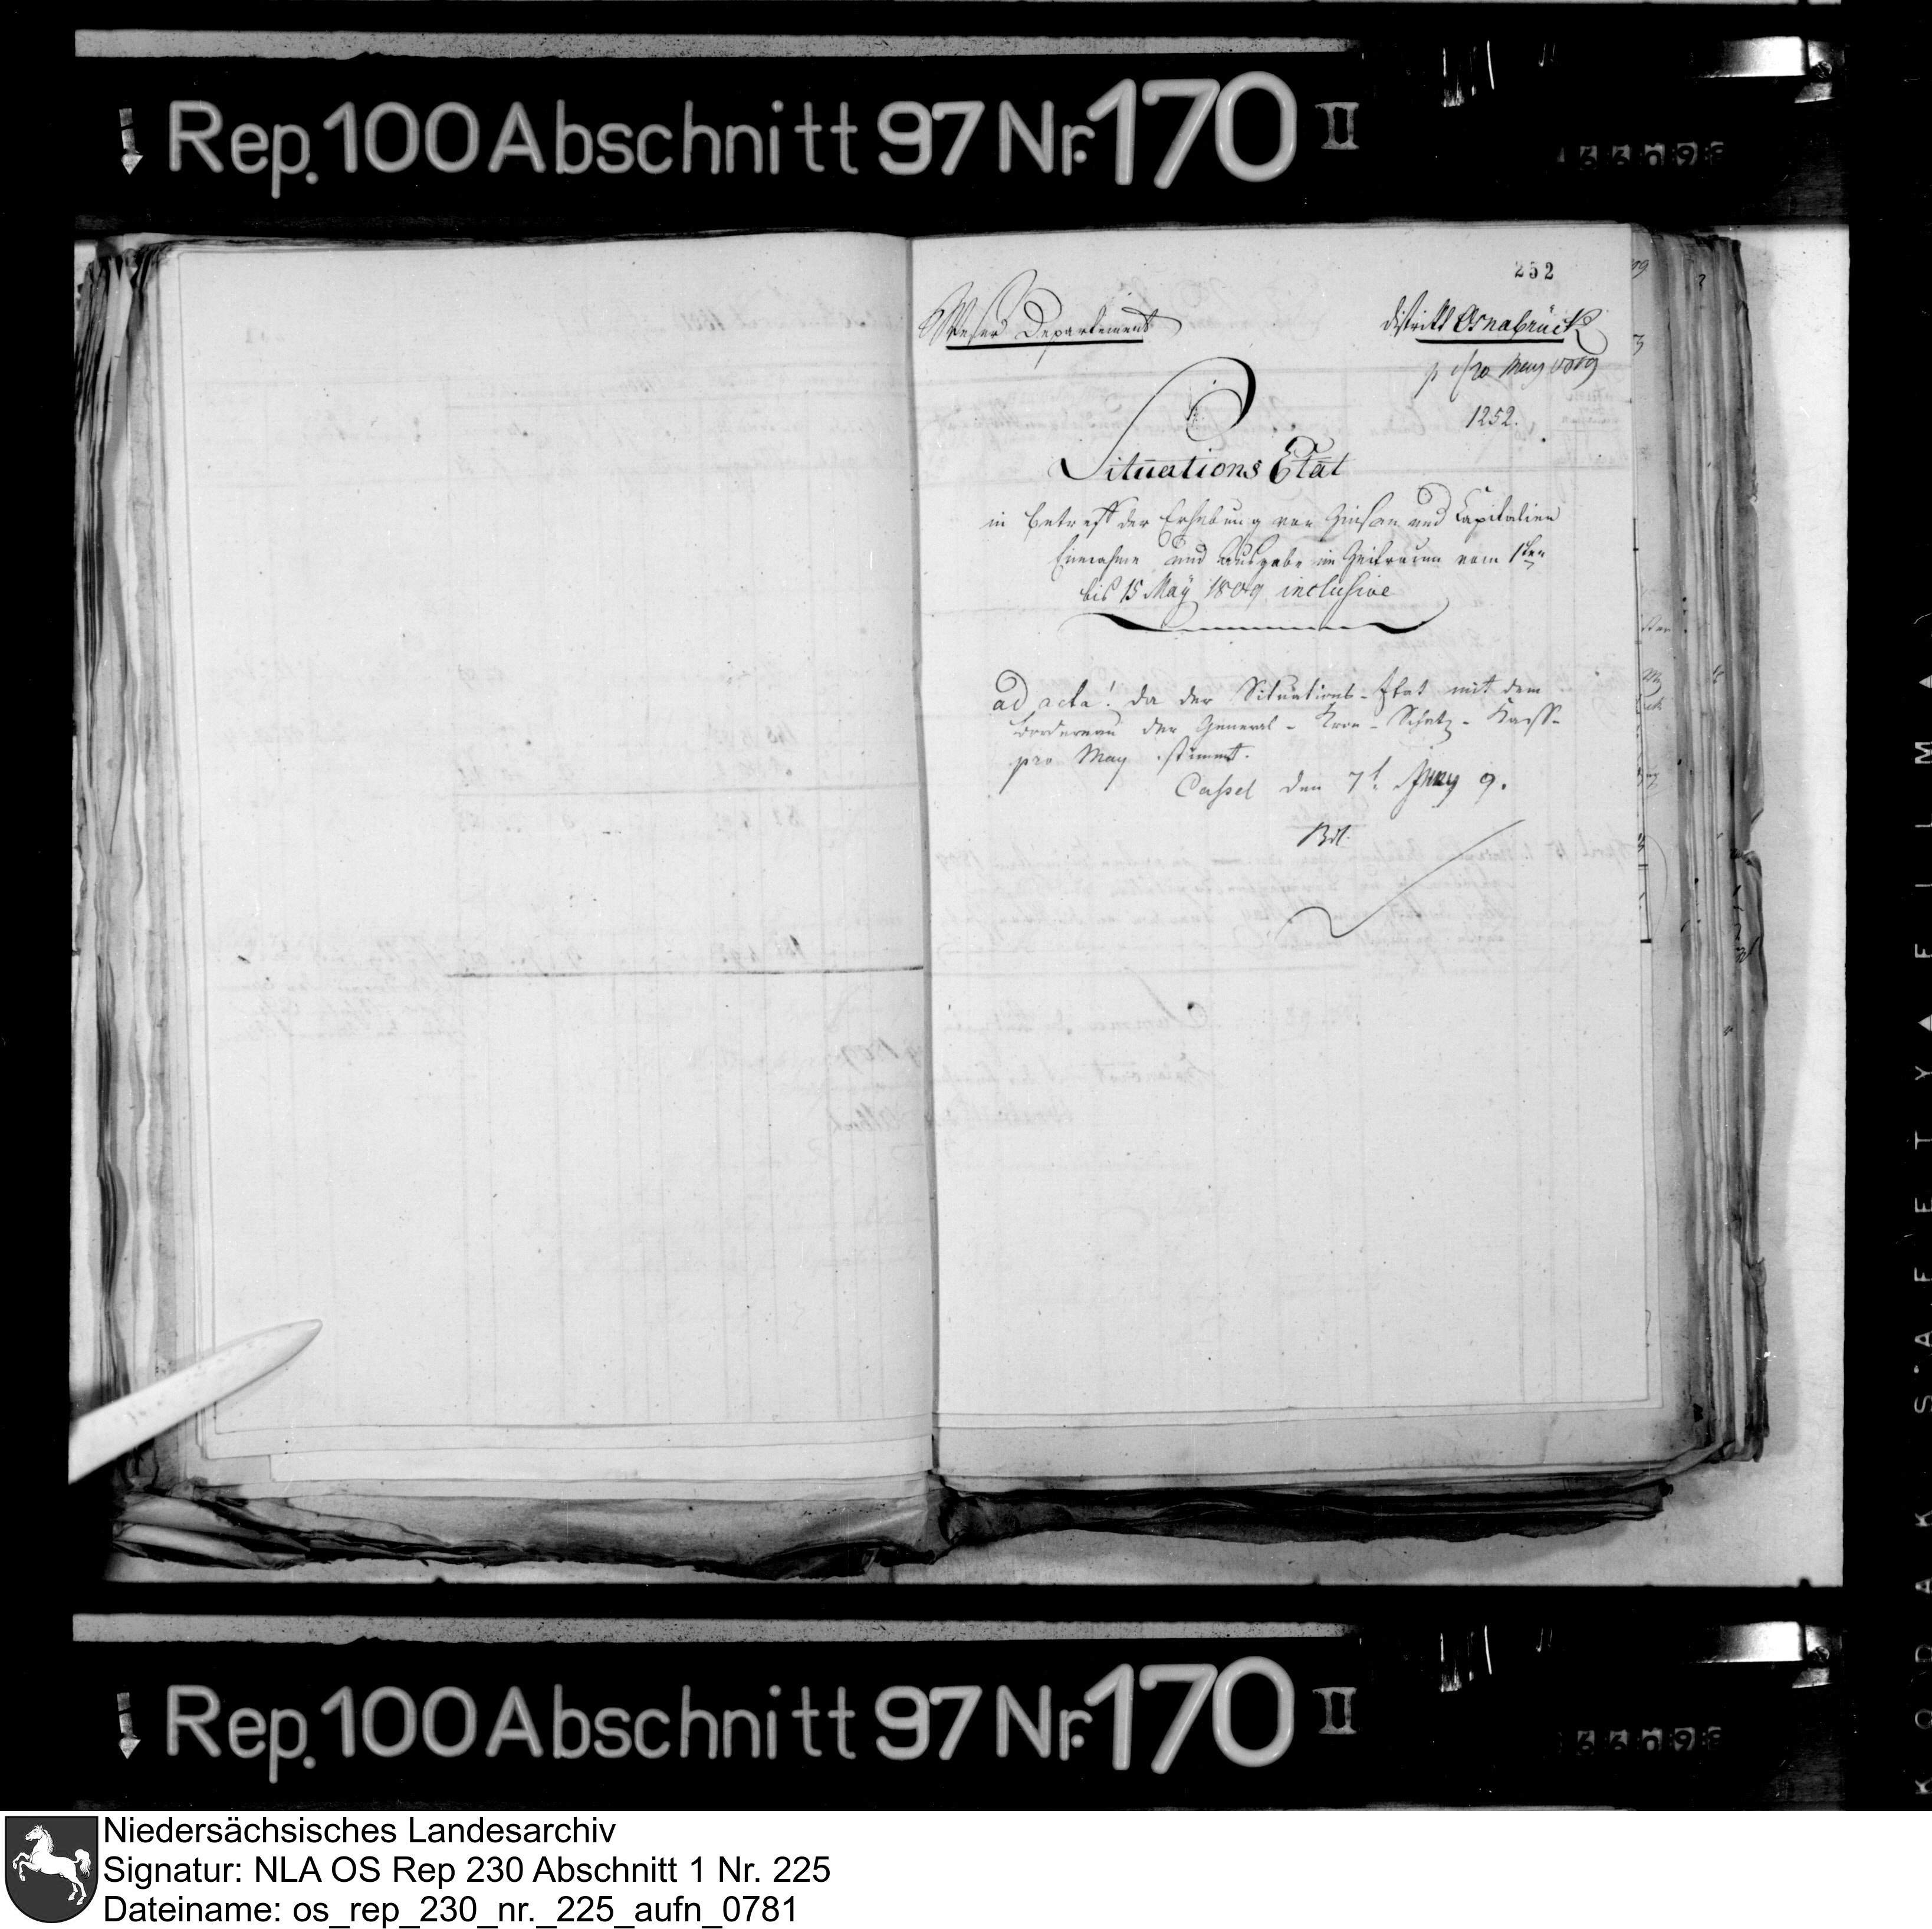 Rep. 100 Abschnitt 97 Nr. 170 II
252
Weser Departement
District Osnabrück
20 May 1809
1252.
Situations Etat
in betreff der Erhebung von Zinsen und Capitalien
Einnahme und Ausgabe im Zeitraum vom 1ten
bis 15 May 1809 inclusive
ad acta! da der Situations-Etat mit dem
Bordereau der General-Kron-Schatz-Kasse
pro May stimmt.
Cassel den 7t Juny 9.
Rep. 100 Abschnitt 97 Nr. 170 II
KODAK SAFETY FILM
Niedersächsisches Landesarchiv
Signatur: NLA OS Rep 230 Abschnitt 1 Nr. 225
Dateiname: os_rep_230_nr._225_aufn_0781